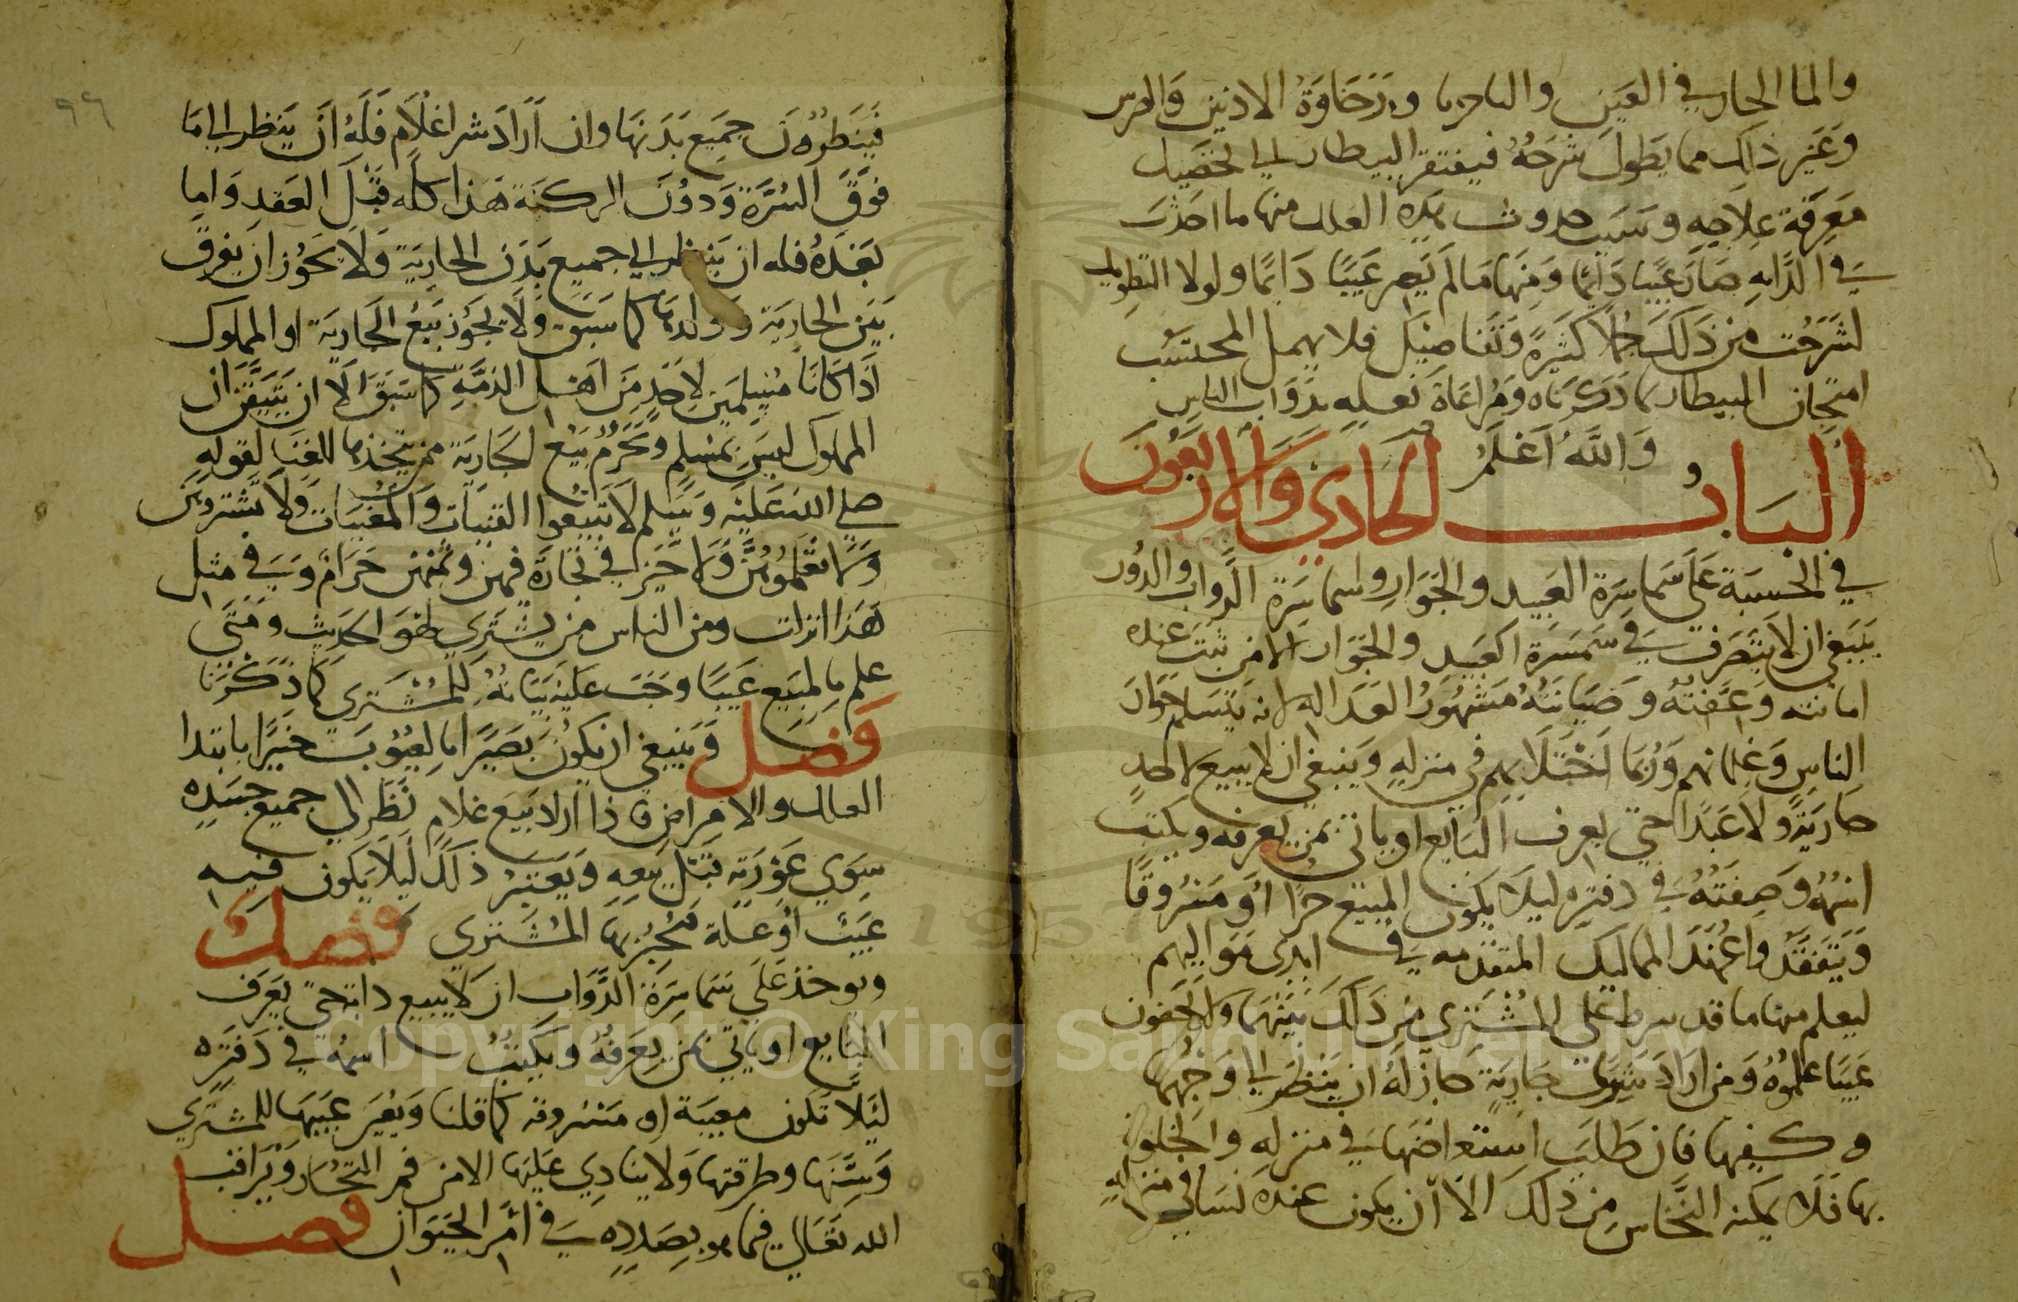 والما الحار في العين والباحونا ورخاوة الاذنين والخرس
وغير ذلك مما يطول شرحه فيفتقر البيطار الي تحصيل
معرفة علاجه وسبب حدوث هذه العلل منها ما احدث
في الدابه صار عيبا دايما ومنها مالم يصر عيبا دايما ولولا التطويل
لشرحت من ذلك جملا كثيرة وتفاصيل فلا يهمل المحتسب
امتحان البيطار بما ذكرناه ومراعاة فعله بدواب الناس
والله اعلم
الباب الحادي والاربعون
في الحسبة علي سماسرة العبيد والجوار وسماسرة الدواب والدور
ينبغي ان لا يتصرف في سمسرة العبيد والجوار الا من ثبت عنده
امانته وعفته وصيانته مشهور العداله لانه يتسلم جوار
الناس وغلمانهم وربما اختلا بهم في منزله وينبغي ان لا يبيع لاحد
جارية ولا عبدا حتي يعرف البايع او ياتي بمن يعرفه ويكتب
اسمه وصفته في دفتره ليلا يكون المبيع حرا او مسروقا
ويتفقد واعهد المماليك المتقدمه في ايدي مواليهم
ليعلم منها ما قد شرط علي المشتري من ذلك بينها ولا يخفون
عيبا علموه ومن اراد شري جارية جاز له ان ينظر الي وجهها
وكفيها فان طلب استعراضها في منزله والخلوة
بها فلا يمكنه النخاس من ذلك الا ان يكون عنده نسا في منزله
٩٦
فينظرون جميع بدنها وان اراد شرا غلام فله ان ينظر الي ما
فوق السرة ودون الركبة هذا كله قبل العقد واما
بعده فله ان ينظر الي جميع بدن الجارية ولا يجوز ان يفرق
بين الجارية وولدها كما سبق ولا يجوز بيع الجارية او المملوك
اذا كانا مسلمين لاحد من اهل الذمة كما سبق الا ان يتيقن ان
المملوك ليس بمسلم ويحرم بيع الجارية ممن يتخذها للغنا لقوله
صلي الله عليه وسلم لا تبيعوا القينات والمغنيات ولا تشتروهن
ولا تعلموهن ولا خير في تجارة فيهن وثمنهن حرام وفي مثل
هذا انزلت ومن الناس من يشتري لهو الحديث ومتي
علم بالمبيع عيبا وجب عليه بيانه للمشتري كما ذكرنا
فصل وينبغي ان يكون بصيرا بالعيوب خبيرا بابتدا
العلل والامراض فاذا اراد بيع غلام نظر الي جميع جسده
سوي عورته قبل بيعه ويعتبر ذلك ليلا يكون فيه
عيب او علة فيخبر بها المشتري فصل
ويوخذ علي سماسرة الدواب ان لا يبيع دابة حتي يعرف
البايع او ياتي بمن يعرفه ويكتب اسمه في دفتره
ليلا تكون معيبة او مسروقه كما قلنا ويعير عيبها للمشتري
وسنها وطرقتها ولا ينادي عليها الا من فم التجار ويراقب
الله تعالي فيما هو بصدده في امر الحيوان فصل
Copyright © King Saud University
1957